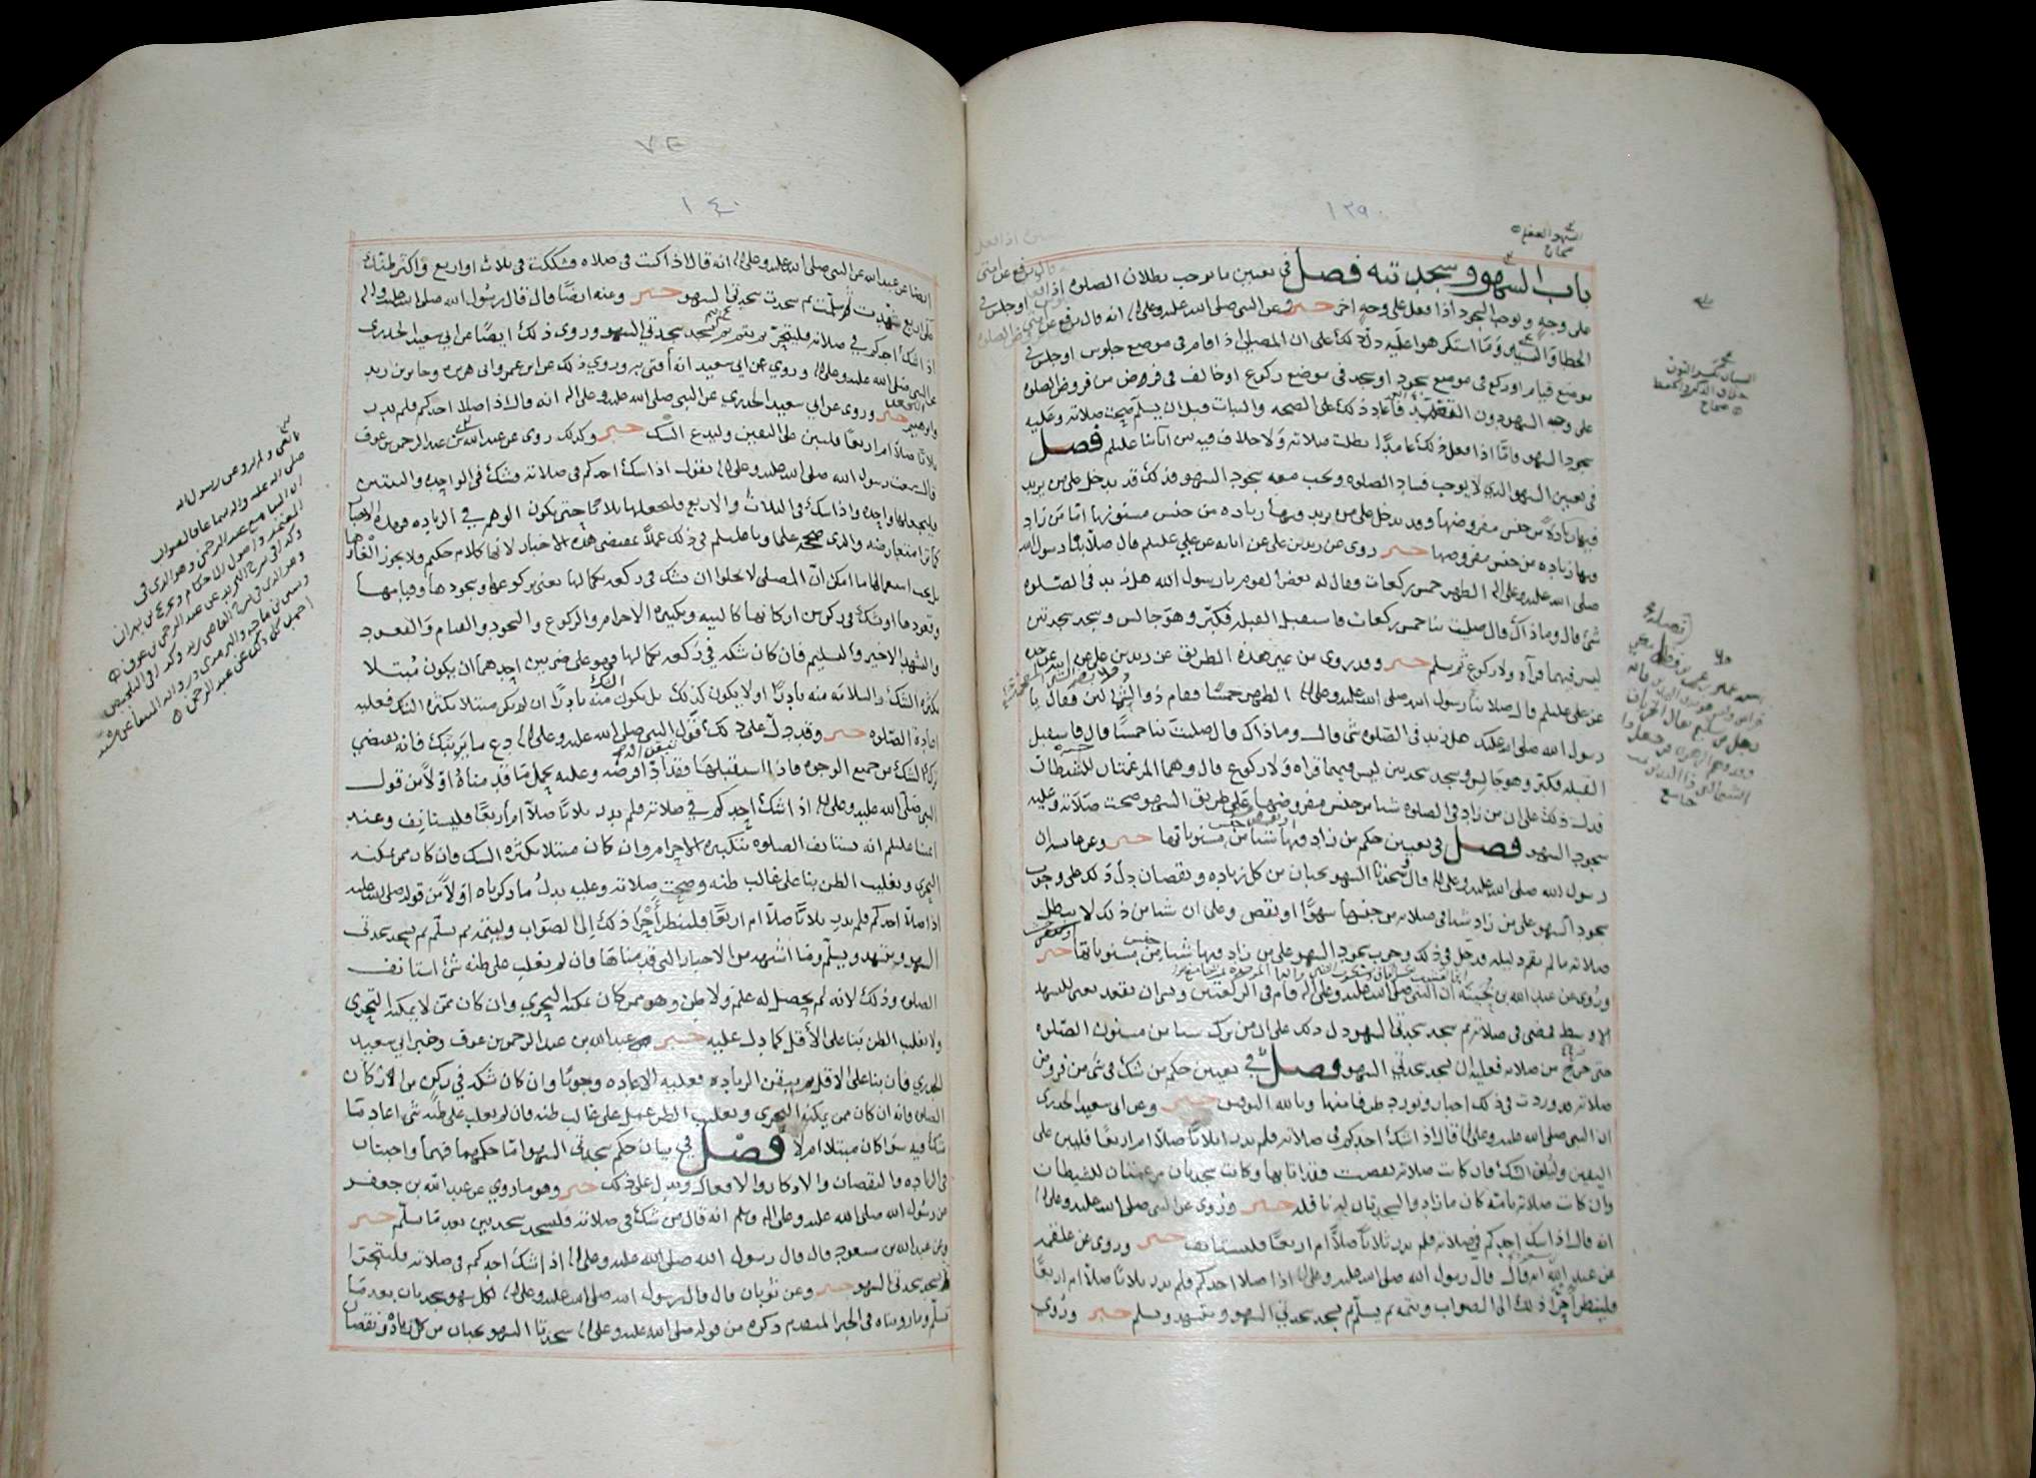 ١٣٩
السهو الغفلة
صحاح
باب السهو وسجدتيه فصل في تعيين ما يوجب بطلان الصلوه اذا فعل
على وجه ويوجب السجود اذا فعل على وجه اخر خبر وعن النبي صلى الله عليه وعلى اله انه قال رفع عن امتي
الخطا والنسيان وما استكرهوا عليه دل ذلك على ان المصلي اذا قام في موضع جلوس او جلس في
موضع قيام او ركع في موضع سجود او سجد في موضع ركوع او خالف في فروض من فروض الصلوه
على وجه السهو دون فاعاد ذلك على الصحه والثبات قبل ان يسلم صحت صلاته وعليه
سجود السهو وامّا اذا فعل ذلك عامدا بطلت صلاته ولا خلاف فيه بين ائمتنا عليهم فصل
في تعيين السهو الذي لا يوجب فساد الصلوه ويجب معه سجود السهو فذلك قد يدخل على من يزيد
فيها زيادة من جنس مفروضها وقد يدخل على من يزيد فيها زياده من جنس مسنونها امّا من زاد
فيها زياده من جنس مفروضها خبر روى عن زيد بن علي عن ابائه عن علي عليهم قال صلا بنا رسول الله
صلى الله عليه وعلى اله الظهر خمس ركعات فقال له بعض القوم يا رسول الله هل زيد في الصّلوه
شئ قال وما ذاك قال صليت بنا خمس ركعات فاستقبل القبله فكبّر وهو جالس وسجد سجدتين
ليس فيهما قرآه ولا ركوع ثم سلم خبر وقد روى من غير هذه الطريق عن زيد بن علي عن ابيه عن جده
عن علي عليهم قال صلا بنا رسول الله صلى الله عليه وعلى اله الظهر خمسًا فقام ذو الشمالين فقال يا
رسول الله صلى الله عليك هل زيد في الصّلوه شئ قال وما ذاك قال صليت بنا خمسًا قال فاستقبل
القبله فكبّر وهو جالس وسجد سجدتين ليس فيهما قراه ولا ركوع قال وهما المرغمتان للشيطان
فدل ذلك على ان من زاد في الصلوه شيا من جنس مفروضها على طريق السهو صحت صلاته وعليه
سجود السهو فصل في تعيين حكم من زاد فيها شيا من مسنوناتها خبر وعن ثوبان ان
رسول الله صلى الله عليه وعلى اله قال سجدتا السهو تجبان من كل زياده ونقصان دل ذلك على وجوب
سجود السهو على من زاد شيا في صلاته من جنسها سهوًا او نقص وعلى ان شيا من ذلك لا يبطل
صلاته ما لم يقم دليله فدخل في ذلك وجوب سجود السهو على من زاد فيها شيا من جنس مسنوناتها خبر
وروى عن عبد الله بن بُحينة ان النبي صلى الله عليه وعلى اله قام في الركعتين ونسى ان يقعد يعني للتشهد
الاوسط فمضى في صلاته ثم سجد سجدتي السهو دل ذلك على ان من ترك شيا من مسنون الصّلوه
حتى خرج من صلاته فعليه ان يسجد سجدتي السهو فصل في تعيين حكم من شك في شئ من فروض
صلاته قد وردت في ذلك اخبار ونورد طرفا منها وبالله التوفيق خبر وعن ابي سعيد الخدري
ان النبي صلى الله عليه وعلى اله قال اذا شك احدكم في صلاته فلم يدر اثلاثًا صلّا ام اربعًا فليبن على
اليقين وليلق الشك فان كانت صلاته نقصت فقد اتمها وكانت سجدتان مرغمتان للشيطان
وان كانت صلاته تامّه كان ما زاد والسجدتان له نافله خبر وروى عن النبي صلى الله عليه وعلى اله
انه قال اذا شك احدكم في صلاته فلم يدر ثلاثًا صلّا ام اربعًا فليستانف خبر وروى عن علقمه
عن عبد الله انه قال قال رسول الله صلى الله عليه وعلى اله اذا صلا احدكم فلم يدر ثلاثا صلا ام اربعًا
فلينظر احرى ذلك الى الصواب ويتمه ثم يسلّم ثم يسجد سجدتي السهو ويتشهد ويسلم خبر وروي
النسيان بكسر النون
خلاف الذكر والحفظ
صحاح
٧٤
١٤٠
ايضا عن عبد الله عن النبي صلى الله عليه وعلى اله انه قال اذا كنت في صلاه فشككت في ثلاث او اربع واكثر ظنك
على اربع تشهدت ثم سلمت ثم سجدت سجدتي السهو خبر وعنه ايضًا قال قال رسول الله صلى الله عليه وعلى اله
اذا شك احدكم في صلاته فليتحرّ ثم يتم ثم يسجد سجدتي السهو وروى ذلك ايضًا عن ابي سعيد الخدري
عن النبي صلى الله عليه وعلى اله وروي عن ابي سعيد انه أفتى به وروي ذلك عن ابن عمر وابي هريره وجابر بن زيد
وابرهيم خبر وروى عن ابي سعيد الخدري عن النبي صلى الله عليه وعلى اله انه قال اذا صلا احدكم فلم يدر
ثلاثًا صلّا ام اربعًا فليبن على اليقين وليدع الشك خبر وكذلك روى عن عبد الله بن عبد الرحمن بن عوف
قال سمعت رسول الله صلى الله عليه وعلى اله يقول اذا شك احدكم في صلاته فشك في الواحده والثنتين
فليجعلها واحده واذا شك في الثلاث والاربع فليجعلها ثلاثا حتى يكون الوهم في الزياده فهذه الاخبار
كما ترا متعارضه والذي صححه علماونا عليهم في ذلك عملًا بمقتضى هذه الاخبار لانها كلام حكيم ولا يجوز الغاؤها
بل يجب استعمالها ما امكن ان المصلي لا يخلوا ان يشك في ركعه بكمالها يعني بركوعها وسجودها وقيامها
وقعودها او شك في ركن من اركانها كالنيه وتكبيره الاحرام والركوع والسجود والقيام والقعود
والتشهد الاخير والتسليم فان كان شكه في ركعه بكمالها فهو على ضربين احدهما ان يكون مُبتلا
بكثره الشك والسلامه منه نادرًا او لا يكون كذلك بل يكون الشك منه نادرًا ان لم يكن مبتلا بكثره الشك فعليه
اعادة الصّلوه خبر وقد دل على ذلك قول النبي صلى الله عليه وعلى اله دع ما يريبك فانه يقتضي
ترك الشك من جميع الوجوه فاذا استقبلها فقد ادّى فرضه وعليه يحمل ما قدمناه اوّلًا من قول
النبي صلّى الله عليه وعلى اله اذا شك احدكم في صلاته فلم يدر ثلاثا صلّا ام أربعًا فليستانف وعند
ائمتنا عليهم انه يستانف الصلوه بتكبيره الاحرام وان كان مبتلا بكثره الشك وان كان ممن يمكنه
التحري ويغلب الظن بنا على غالب ظنه وصحت صلاته وعليه يدلُ ما ذكرناه اوّلًا من قوله صلى الله عليه
اذا صلا احدكم فلم يدر ثلاثًا صلّا ام اربعًا فلينظر أحرى ذلك إلى الصّواب وليتمه ثم يسلّم ثم يسجد سجدتي
السهو ويتشهد ويسلّم وما اشبهه من الاخبار التي قدمناها فان لم يغلب على ظنه شئ استانف
الصلوه وذلك لانه لم يحصل له علم ولا ظن وهو ممن كان يمكنه التحري وان كان ممّن لا يمكنه التحري
ولا يغلب الظن بنا على الأقل كما دل عليه خبر عبد الله بن عبد الرحمن بن عوف وخبر ابي سعيد
الخدري فان بنا على الاقل ثم تيقن الزياده فعليه الاعاده وجوبًا وان كان شكه في ركن من الاركان
الصلوه فانه ان كان ممن يمكنه التحري ويغلب الظن عمل على غالب ظنه فان لم يغلب على ظنه شئ اعاد ما
شك فيه سوا كان مبتلا ام لا فصل في بيان حكم سجدتي السهو امّا حكمهما فهما واجبتان
في الزياده والنقصان والاذكار والافعال ويدل على ذلك خبر وهو ما روي عن عبد الله بن جعفر
عن رسول الله صلى الله عليه وعلى اله وسلم انه قال من شك في صلاته فليسجد سجدتين بعد ما يسلّم خبر
وعن عبد الله بن مسعود قال قال رسول الله صلى الله عليه وعلى اله اذا شك احدكم في صلاته فليتحرّا
وليسجد سجدتي السهو خبر وعن ثوبان قال قال رسول الله صلى الله عليه وعلى اله لكل سهو سجدتان بعد ما
تسلّم وما رويناه في الخبر المتقدم ذكره من قوله صلى الله عليه وعلى اله سجدتا السهو تجبان من كل زياده ونقصان